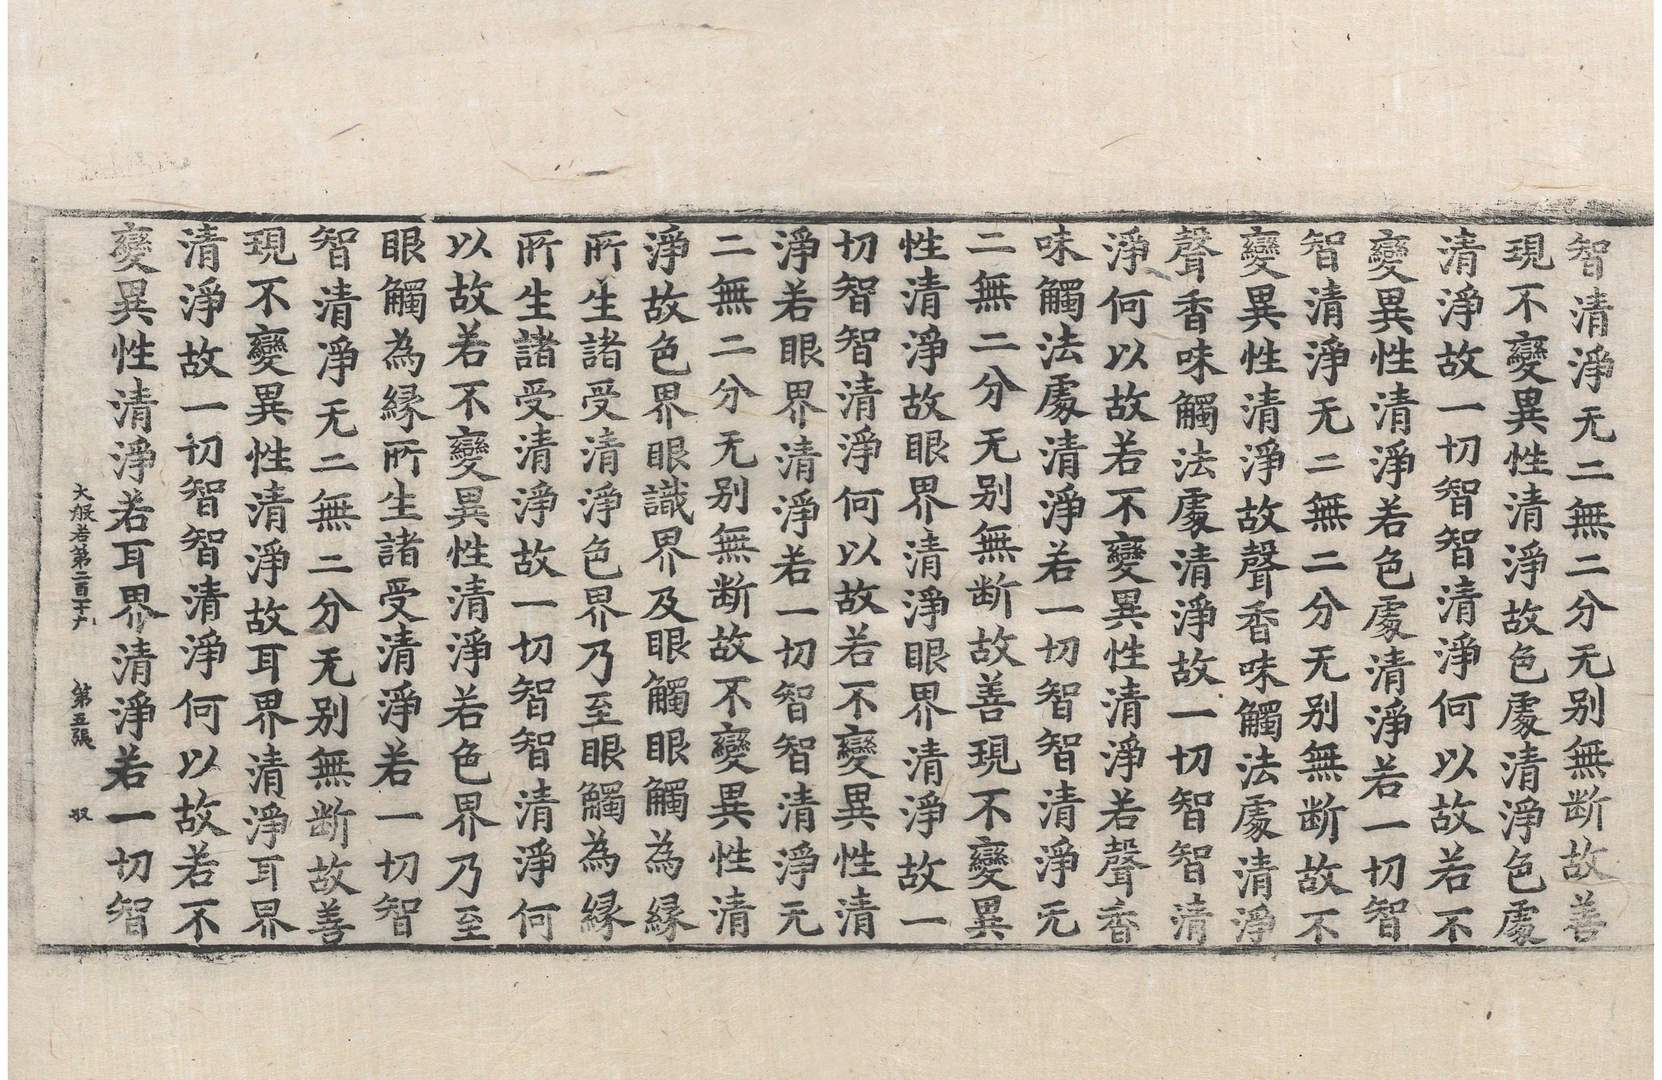 智清淨无二無二分无别無断故善
現不變異性清淨故色處清淨色處
清淨故一切智智清淨何以故若不
變異性清淨若色處清淨若一切智
智清淨无二無二分无别無断故不
變異性清淨故聲香味觸法處清淨
聲香味觸法處清淨故一切智智清
淨何以故若不變異性清淨若聲香
味觸法處清淨若一切智智清淨无
二無二分无别無断故善現不變異
性清淨故眼界清淨眼界清淨故一
切智智清淨何以故若不變異性清
淨若眼界清淨若一切智智清淨无
二無二分无别無断故不變異性清
淨故色界眼識界及眼觸眼觸為緣
所生諸受清淨色界乃至眼觸為緣
所生諸受清淨故一切智智清淨何
以故若不變異性清淨若色界乃至
眼觸為緣所生諸受清淨若一切智
智清淨无二無二分无别無断故善
現不變異性清淨故耳界清淨耳界
清淨故一切智智清淨何以故若不
變異性清淨若耳界清淨若一切智
大般若第二百十九 第五張